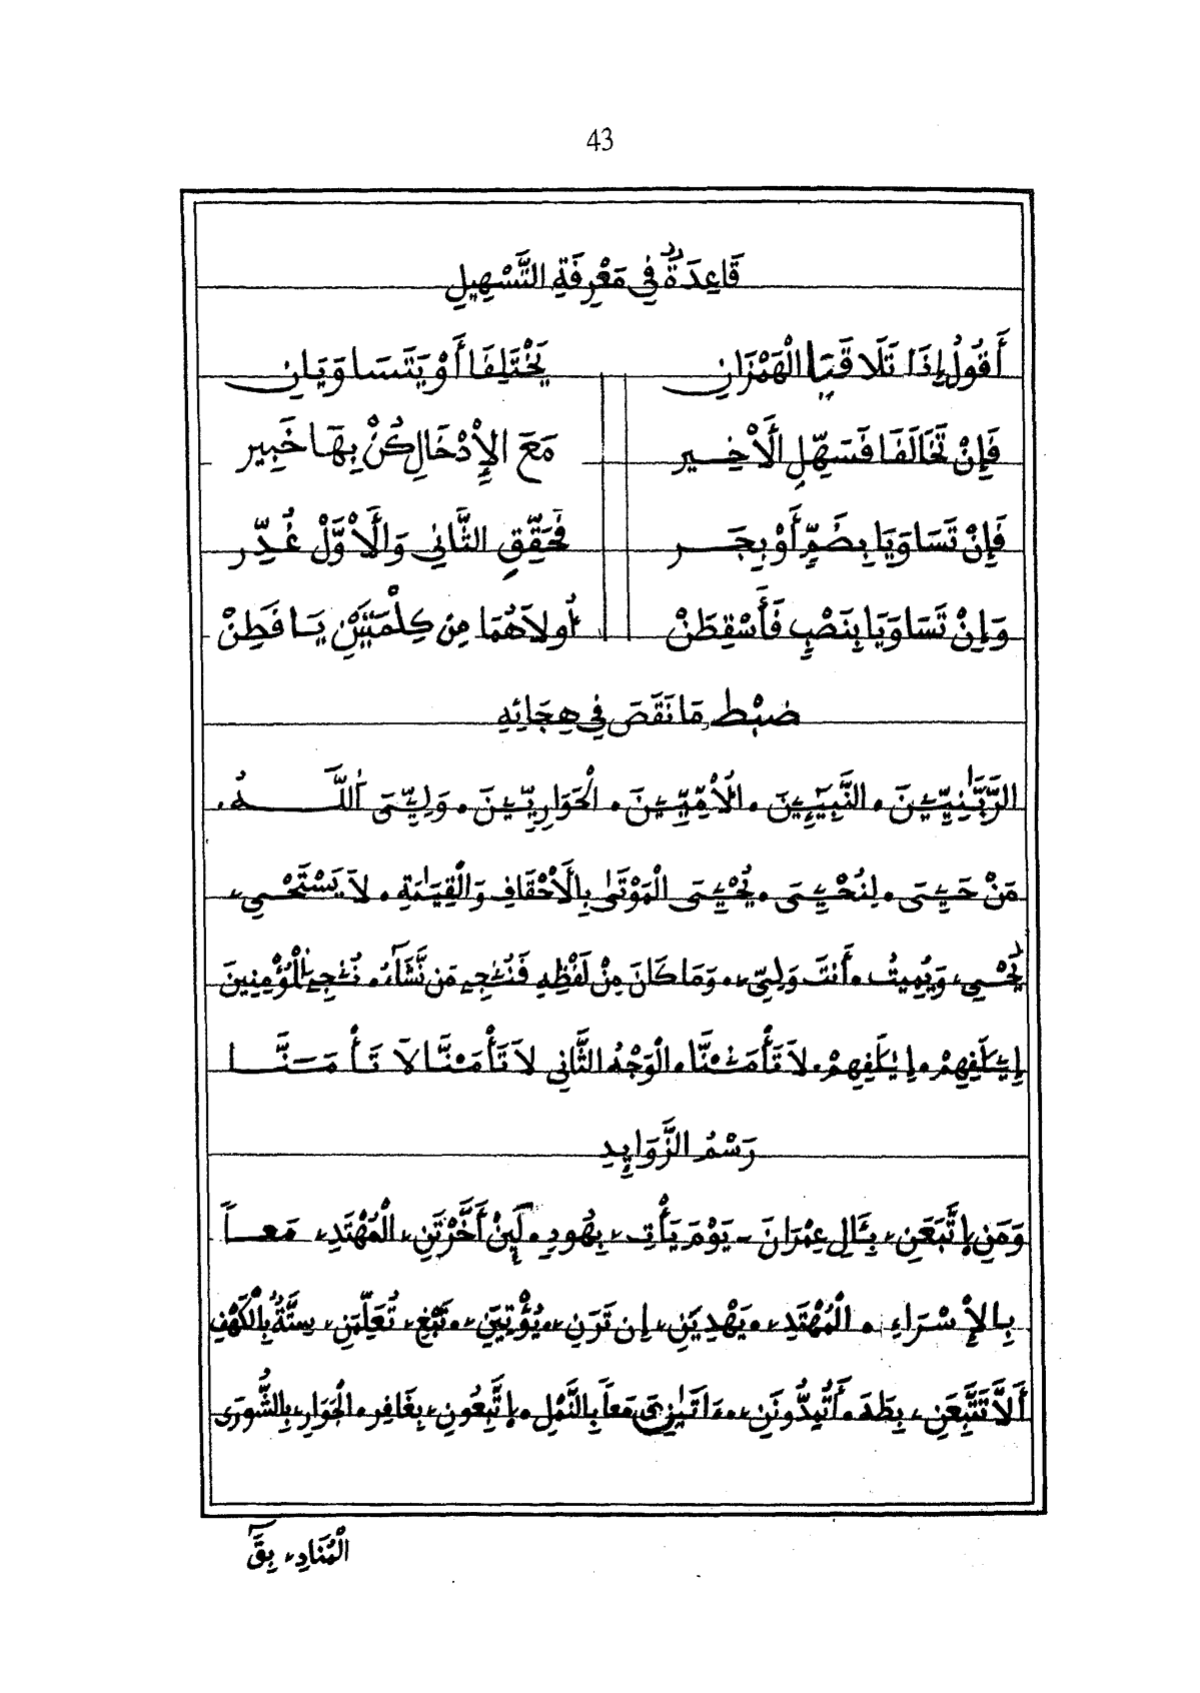 43
قَاعِدَةٌ فِي مَعْرِفَةِ التَّسْهِيلِ
أَقُولُ إِذَا تَلَاقَيَا الْهَمْزَانِ يَخْتَلِفَا أَوْ يَتَسَاوَيَانِ
فَإِنْ تَخَالَفَا فَسَهِّلِ الْأَخِيرِ مَعَ الْإِدْخَالِ كُنْ بِهَا خَبِيرِ
فَإِنْ تَسَاوَيَا بِضَمٍّ أَوْ بِجَرِ فَحَقِّقِ الثَّانِي وَالْأَوَّلْ غُدِّرِ
وَإِنْ تَسَاوَيَا بِنَصْبٍ فَأَسْقِطَنْ أُولَاهُمَا مِنْ كِلْمَتَيْنِ يَا فَطِنْ
ضَبْطُ مَا نَقَصَ فِي هِجَائِهِ
الرَّبَّٰنِيِّـۧنَ . النَّبِيٓـِٕۧنَ . الْأُمِّيِّـۧنَ . الْحَوَارِيِّـۧنَ . وَلِـِّۧيَ اَللَّهُ .
مَنْ حَـۧيَ . لِنُحْـۧيَ . يُحْـۧيَ الْمَوْتَىٰ بِالْأَحْقَافِ وَالْقِيَٰمَةِ . لَا يَسْتَحْيِۦ
يُحْيِۦ وَيُمِيتُ . أَنتَ وَلِيِّۦ . وَمَا كَانَ مِنْ لَفْظِهِ فَنُۨجِي مَن نَّشَآءُ . نُۨجِي الْمُؤْمِنِينَ
إِۦلَٰفِهِمْ . إِيلَٰفِهِمْ . لَا تَأْمَ۬نَّا . الْوَجْهُ الثَّانِي لَا تَأْمَنْنَا لَا تَأْمَنَّا
رَسْمُ الزَّوَايِدِ
وَمَنِ اِتَّبَعَنِۦ بِـَٔالِ عِمْرَانَ - يَوْمَ يَأْتِۦ بِهُودِ . لَئِنْ أَخَّرْتَنِۦ الْمُهْتَدِۦ مَعاً
بِالْإِسْرَاءِ . الْمُهْتَدِۦ . يَهْدِيَنِۦ إِن تَرَنِۦ . يُؤْتِيَنِۦ . نَبْغِۦ تُعَلِّمَنِۦ سِتَّةٌ بِالْكَهْفِ
أَلَّا تَتَّبِعَنِۦ بِطَهَ . أَتُمِدُّونَنِۦ . ءَاتَيٰنِۦَ مَعاً بِالنَّمْلِ . اِتَّبِعُونِۦ بِغَافِرِ . الْجَوَارِۦ بِالشُّورَى
الْمُنَادِۦ بِقَٓ